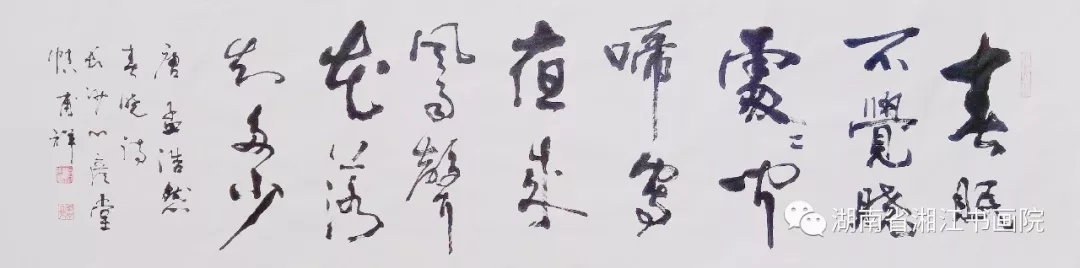 春眠
不覺曉
處〻聞
啼鳥
夜來
風雨聲
花落
知多少
唐孟浩然
春曉詩
長沙
堂
湖南省湘江书画院